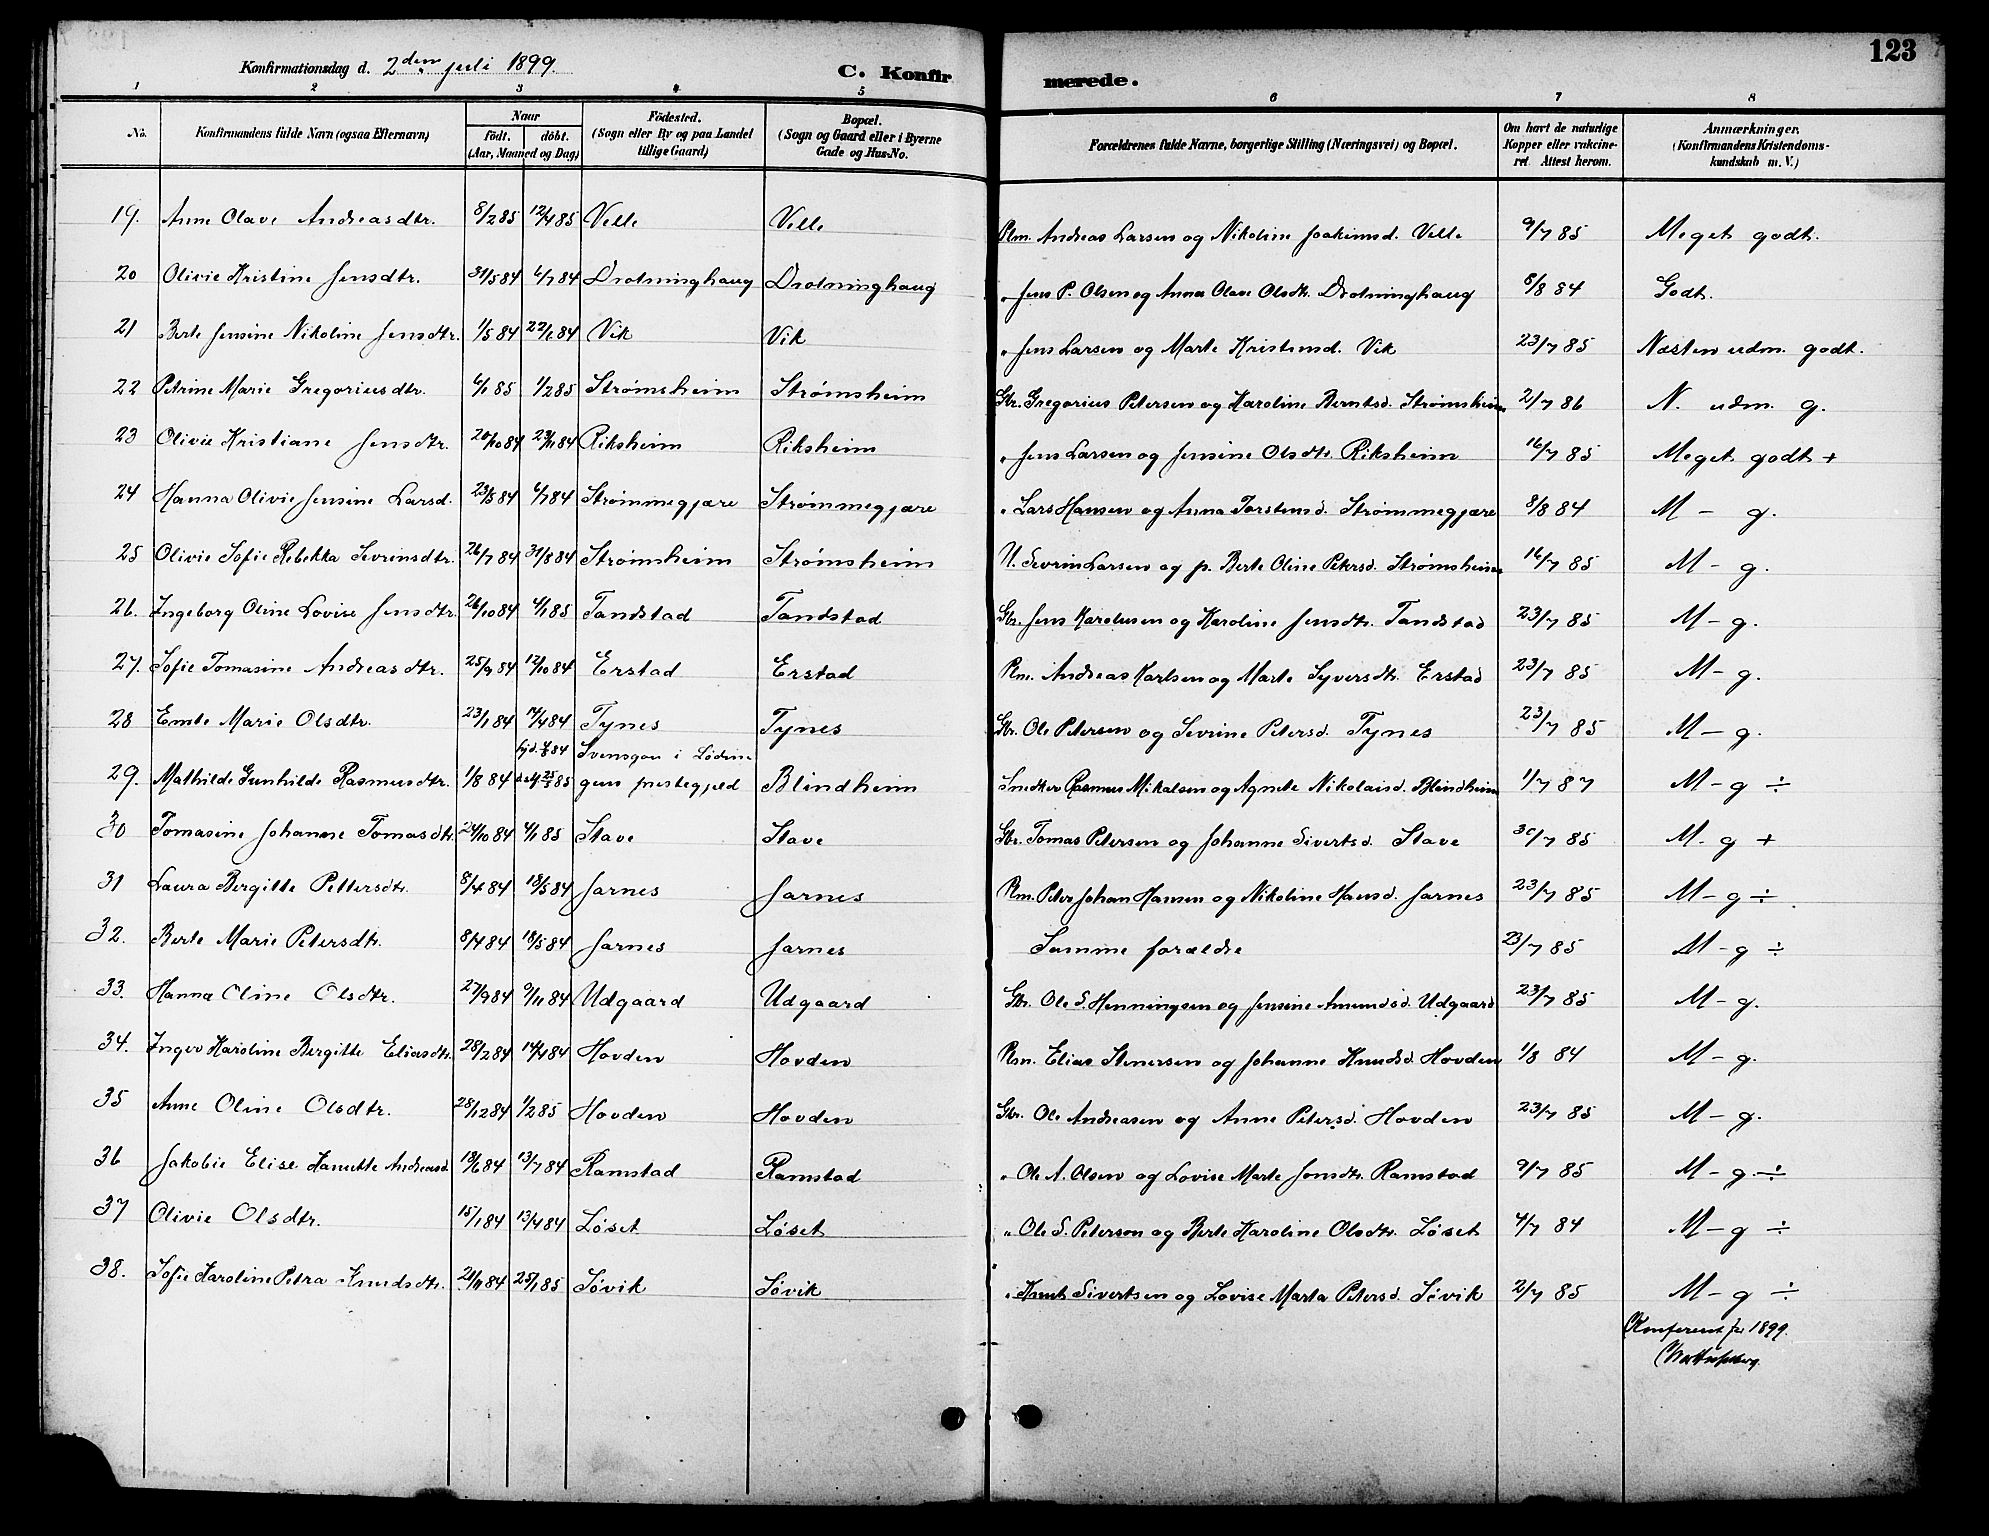 123
Konfirmationsdag d. 2den juli 1899.
C. Konfirmerede.
1 2 3 4 5 6 7 8
No. Konfirmandens fulde Navn (ogsaa Efternavn) Naar födt. döbt. (Aar, Maaned og Dag) Födested. (Sogn eller By og paa Landet tillige Gaard) Bopæl. (Sogn og Gaard eller i Byerne Gade og Hus-No. Forældrenes fulde Navne, borgerlige Stilling (Næringsvei) og Bopæl. Om havt de naturlige Kopper eller vakcineret. Attest herom. Anmærkninger. (Konfirmandens Kristendomskundskab m. V.)
19. Anne Olave Andreasdtr. 8/2 85 12/4 85 Velle Velle Plm. Andreas Larsen og Nikoline Joakimsd. Velle 9/7 85 Meget godt.
20 Olivie Kristine Jensdtr. 31/5 84 6/7 84 Drotninghaug Drotninghaug " Jens P. Olsen og Anna Olave Olsdtr. Drotninghaug 8/8 84 Godt.
21 Berte Jensine Nikoline Jensdtr. 1/5 84 22/6 84 Vik Vik " Jens Larsen og Marte Kristensd. Vik 23/7 85 Næsten udm. godt.
22 Petrine Marie Gregoriusdtr. 6/1 85 1/2 85 Strømsheim Strømsheim Gbr. Gregorius Petersen og Karoline Berntsd. Strømsheim 2/7 86 N. udm. g.
23 Olivie Kristiane Jensdtr. 20/10 84 23/11 84 Riksheim Riksheim " Jens Larsen og Jensine Olsdtr. Riksheim 16/7 85 Meget godt +
24 Hanna Olivie Jensine Larsd. 23/5 84 6/7 84 Strømmegjære Strømmegjære " Lars Hansen og Anna Torstensd. Strømmegjære 8/8 84 M - g.
25 Olivie Sofie Rebekka Sevrinsdtr. 26/7 84 31/8 84 Strømsheim Strømsheim U. Sevrin Larsen og p. Berte Oline Petersd. Strømsheim 16/7 85 M - g.
26. Ingeborg Oline Lovise Jensdtr. 26/10 84 4/1 85 Tandstad Tandstad Gbr. Jens Karolusen og Karoline Jensdtr. Tandstad 23/7 85 M - g.
27. Sofie Tomasine Andreasdtr. 25/9 84 12/10 84 Erstad Erstad Plm. Andreas Karlsen og Marte Syversdtr. Erstad 23/7 85 M - g.
28 Emte Marie Olsdtr. 23/1 84 14/4 84 Tynes Tynes Gbr. Ole Petersen og Sevrine Petersd. Tynes 23/7 85 M - g.
29. Mathilde Gunhilde Rasmusdtr. 1/8 84 Svensgau i Lødingen prestegjeld Blindheim Snedker Rasmus Mikalsen og Agnete Nikolaisd. Blindheim 1/7 87 M - g ÷
30 Tomasine Johanne Tomasdtr. 24/10 84 4/1 85 Stave Stave Gbr. Tomas Petersen og Johanne Sivertsd. Stave 30/7 85 M. g +
31 Laura Bergitte Pettersdtr. 8/4 84 18/5 84 Jarnes Jarnes Plm. Peter Johan Hansen og Nikoline Hansd. Jarnes 23/7 85 M - g ÷
32. Berte Marie Petersdtr. 8/4 84 18/5 84 Jarnes Jarnes Samme forældre 23/7 85 M - g ÷
33. Hanna Oline Olsdtr. 27/9 84 9/11 84 Udgaard Udgaard Gbr. Ole S. Henningsen og Jensine Amundsd. Udgaard 23/7 85 M - g.
34. Inger Karoline Bergitte Eliasdtr. 28/2 84 14/4 84 Hovden Hovden Plm. Elias Stenersen og Johanne Knudsd. Hovden 1/8 84 M - g.
35 Anne Oline Olsdtr. 28/12 84 1/2 85 Hovden Hovden Gbr. Ole Andreasen og Anne Petersd. Hovden 23/7 85 M - g.
36 Jakobie Elise Hanutte Andreasd. 18/6 84 13/7 84 Ramstad Ramstad " Ole A. Olsen og Lovise Marte Jensdtr. Ramstad 9/7 85 M - g ÷
37 Olivie Olsdtr. 15/1 84 13/4 84 Løset Løset " Ole S. Peterson og Berte Karoline Olsdtr. Løset 4/7 84 M - g ÷
38. Sofie Karoline Petra Knudsdtr. 21/11 84 25/1 85 Søvik Søvik " Knut Sivertsen og Lovise Marta Petersd. Søvik 2/7 85 M - g ÷
Konfereret for 1899.